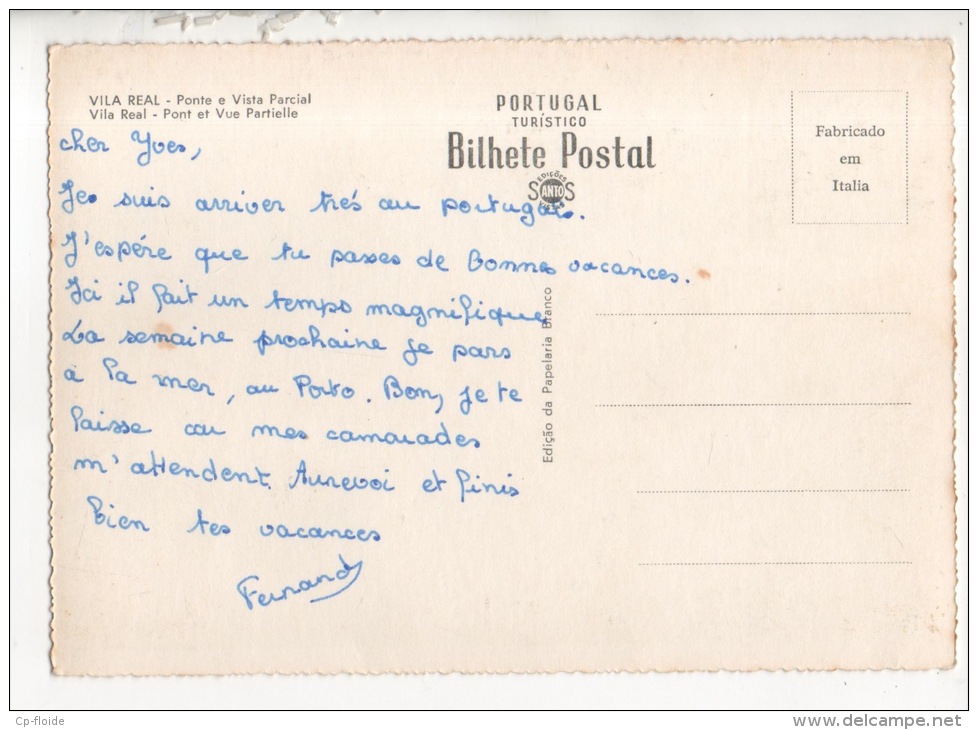 VILA REAL - Ponte e Vista Parcial
Vila Real - Pont et Vue Partielle
PORTUGAL
TURÍSTICO
Bilhete Postal
EDIÇÕES
SANTOS
Fabricado
em
Italia
cher Yves,
Je suis arriver trés au portugais.
J'espére que tu passes de bonnes vacances.
Ici il fait un temps magnifique
La semaine prochaine je pars
a la mer, au Porto. Bon, je te
laisse car mes camarades
m'attendent. Aurevoi et finis
bien tes vacances
Fernand
Edição da Papelaria Branco
Cp-floide
www.delcampe.net